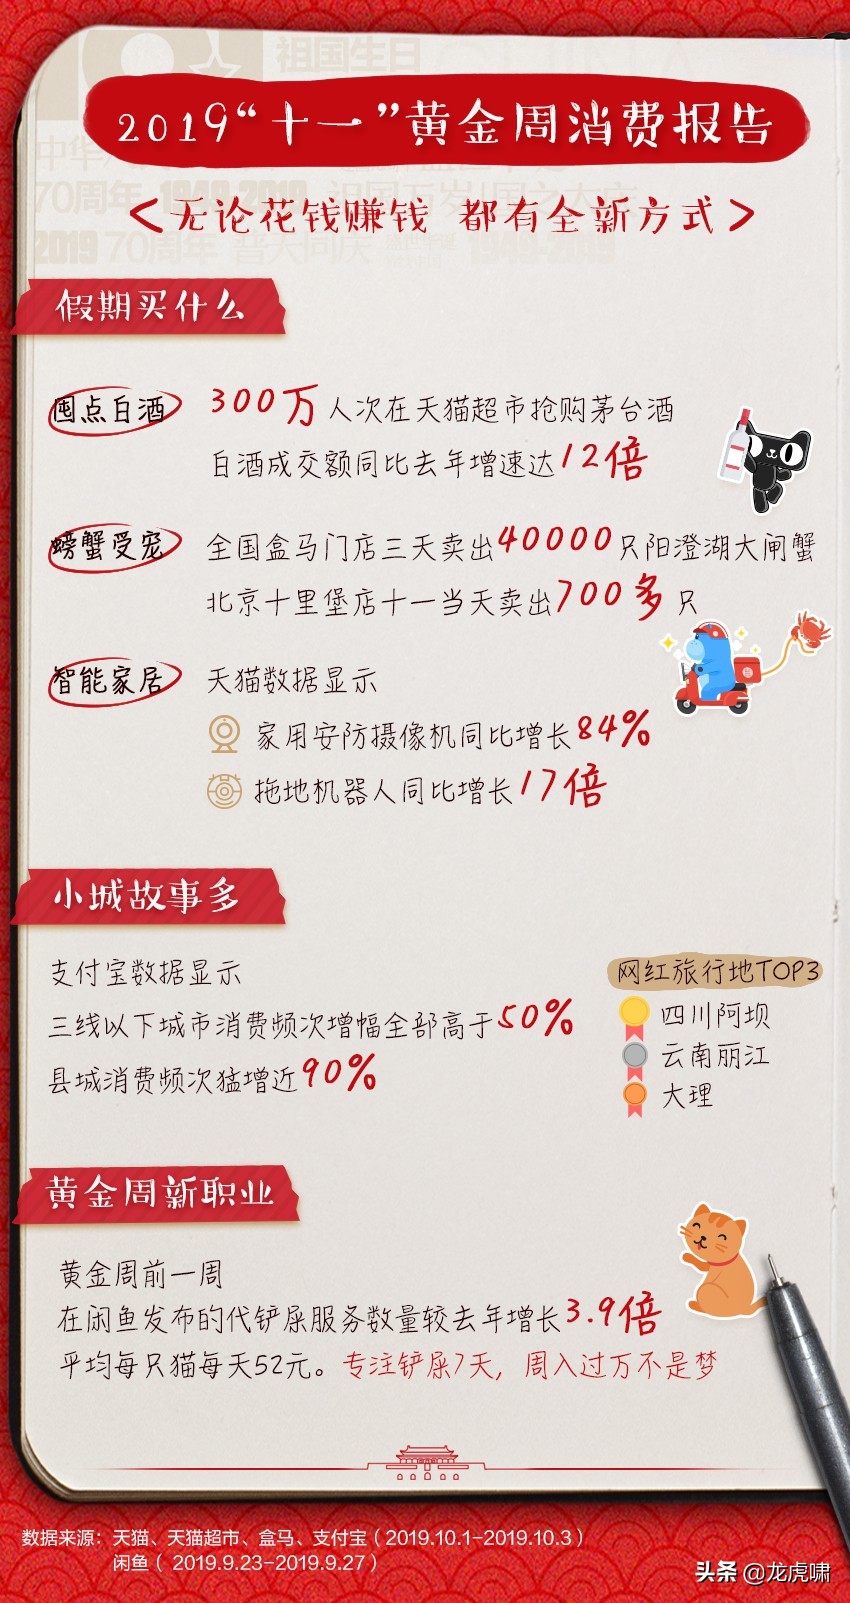 祖国生日
70周年 1949-2019 祖国万岁
2019 70周年 普天同庆 1949-2019
2019“十一”黄金周消费报告
<无论花钱赚钱 都有全新方式>
假期买什么
囤点白酒
300万人次在天猫超市抢购茅台酒
白酒成交额同比去年增速达12倍
螃蟹受宠
全国盒马门店三天卖出40000只阳澄湖大闸蟹
北京十里堡店十一当天卖出700多只
智能家居
天猫数据显示
家用安防摄像机同比增长84%
拖地机器人同比增长17倍
小城故事多
支付宝数据显示
三线以下城市消费频次增幅全部高于50%
县城消费频次猛增近90%
网红旅行地TOP3
四川阿坝
云南丽江
大理
黄金周新职业
黄金周前一周
在闲鱼发布的代铲屎服务数量较去年增长3.9倍
平均每只猫每天52元。专注铲屎7天，周入过万不是梦
数据来源：天猫、天猫超市、盒马、支付宝（2019.10.1-2019.10.3）
闲鱼（ 2019.9.23-2019.9.27）
头条 @龙虎啸